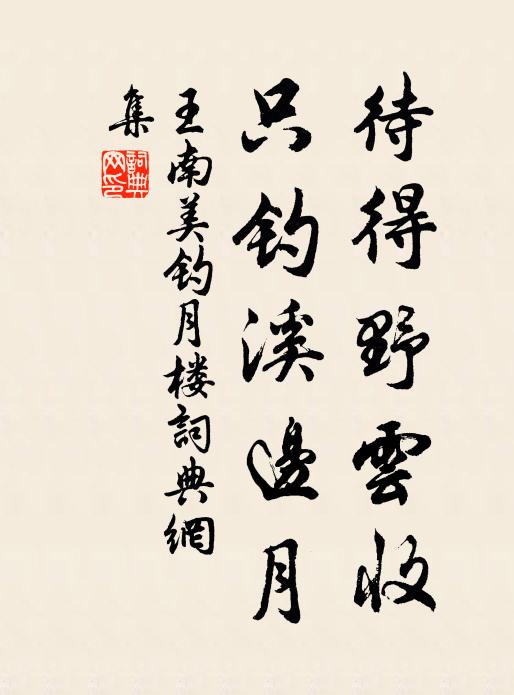 待得野雲收
只钓溪邊月
王南美钓月楼詞典網
集
詞典
网印